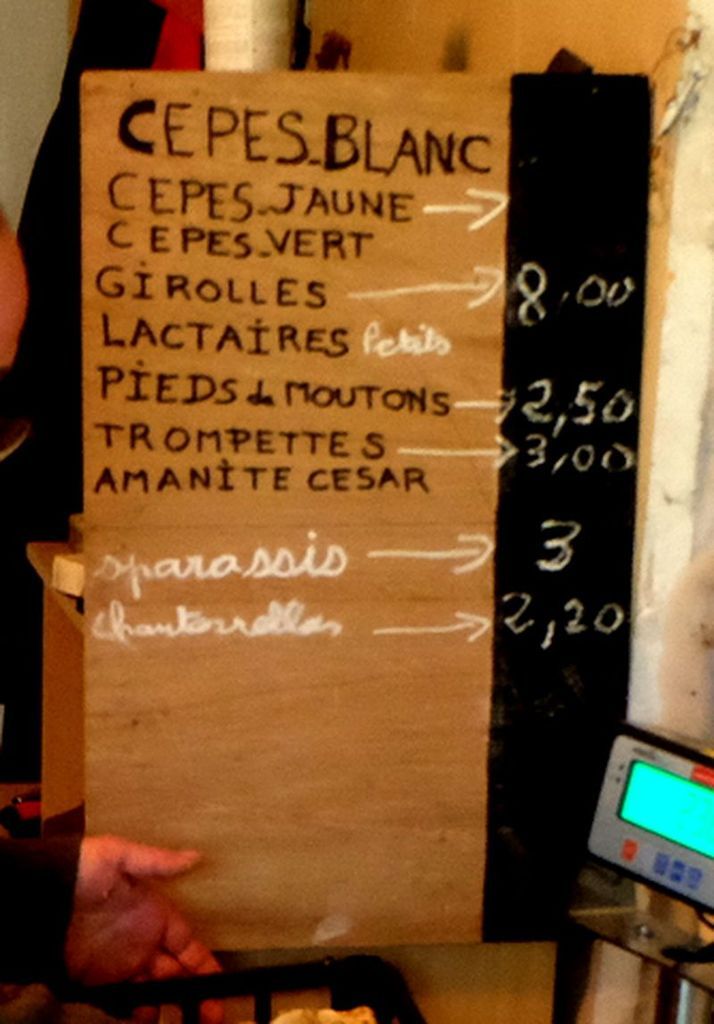 CEPES-BLANC
CEPES-JAUNE →
CEPES-VERT
GIROLLES → 8,00
LACTAIRES Petits
PIEDS de MOUTONS → 2,50
TROMPETTES → 3,00
AMANITE CESAR
sparassis → 3
chanterelles → 2,20